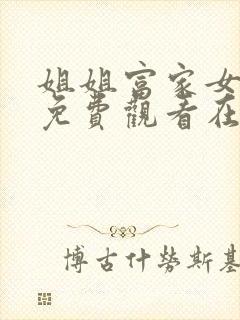 姐姐富家女
免費觀看在
博古什勞斯基